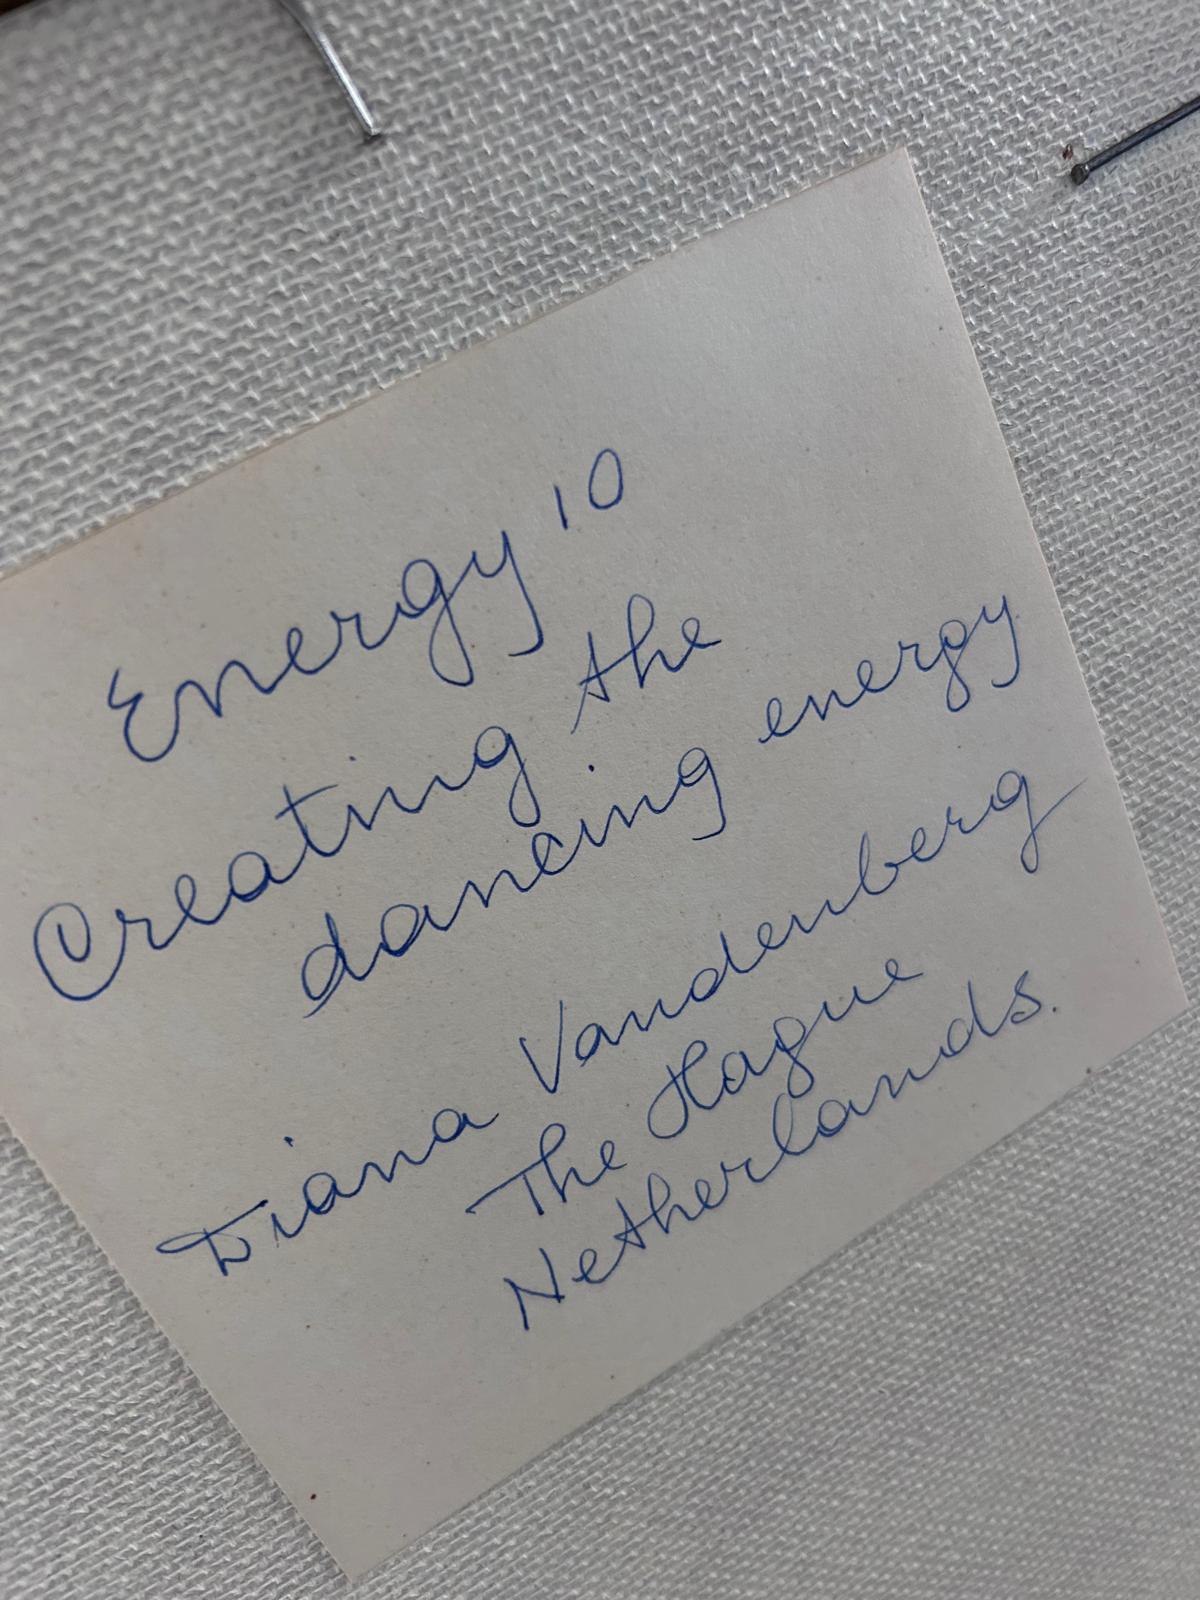 Energy 10
Creating the
dancing energy
Diana Vandenberg
The Hague
Netherlands.